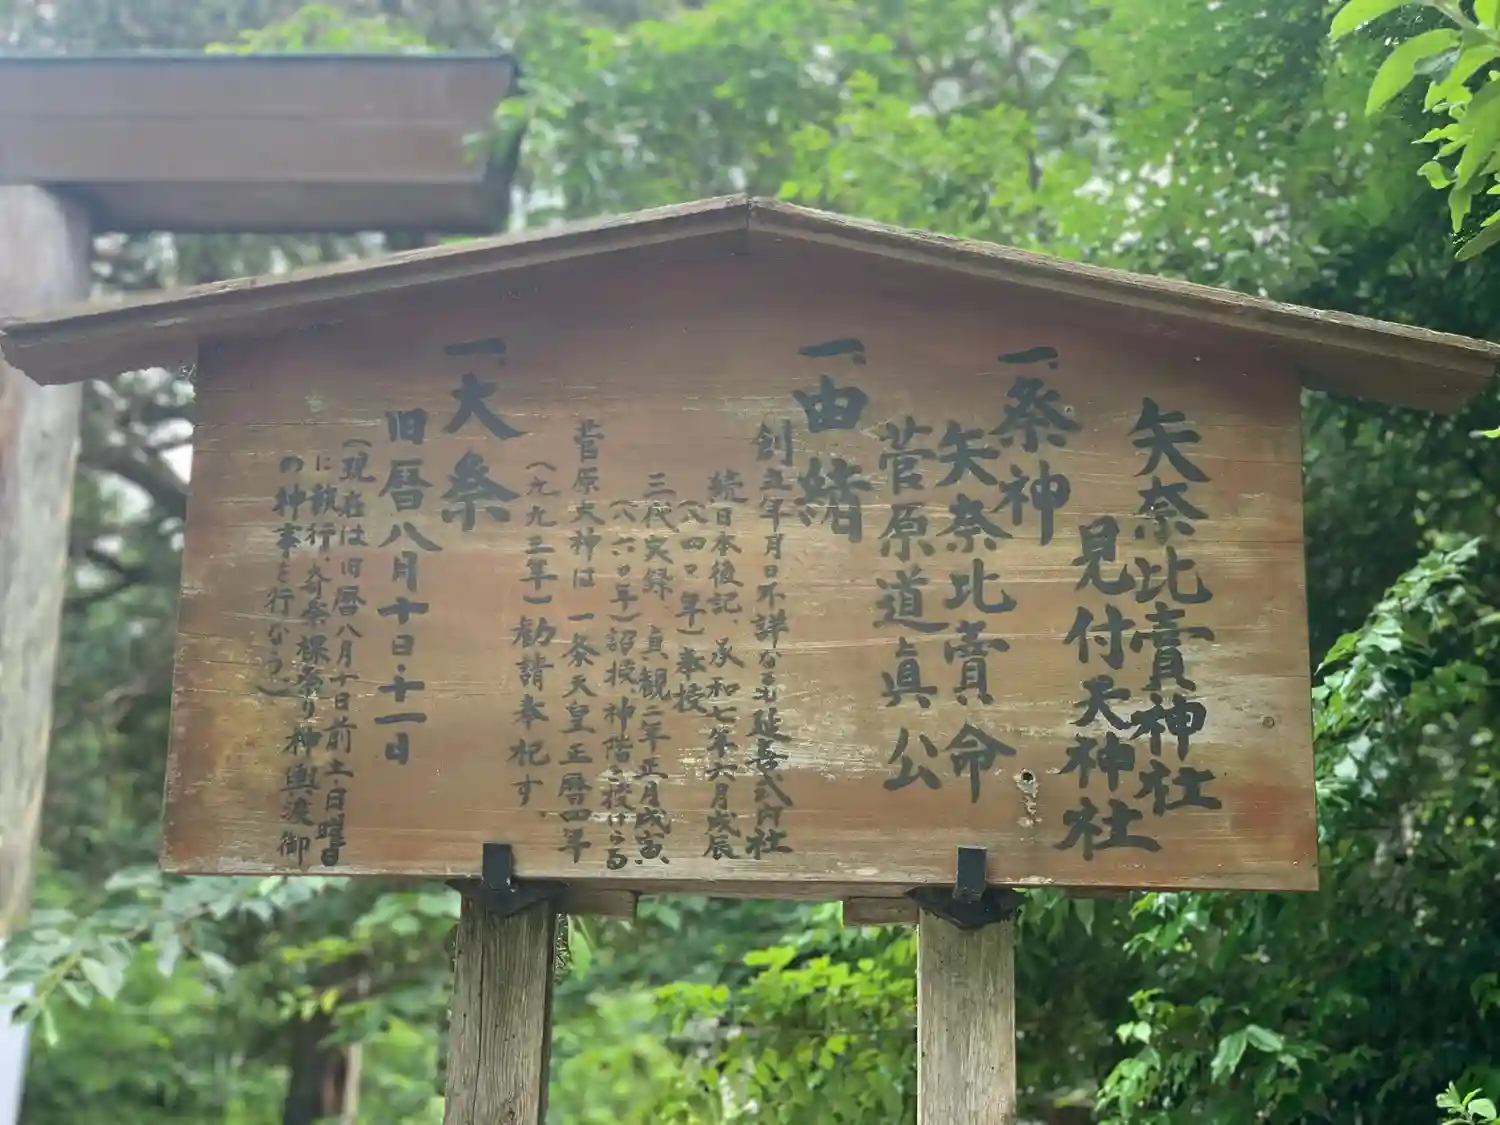 矢奈比賣神社
見付天神社
一、祭神
矢奈比賣命
菅原道眞公
一、由緒
創立年月日不詳なるも延喜式内社
続日本後記、承和七年六月戊辰
(八四〇年)奉授
三代実録、貞観二年正月戊寅
(八六〇年)詔授神階を授けらる
菅原大神は一条天皇正暦四年
(九九三年)勧請奉祀す。
一、大祭
旧暦八月十日・十一日
(現在は旧暦八月十日前土・日曜日
に執行、奇祭裸祭り神輿渡御
の神事を行なう)